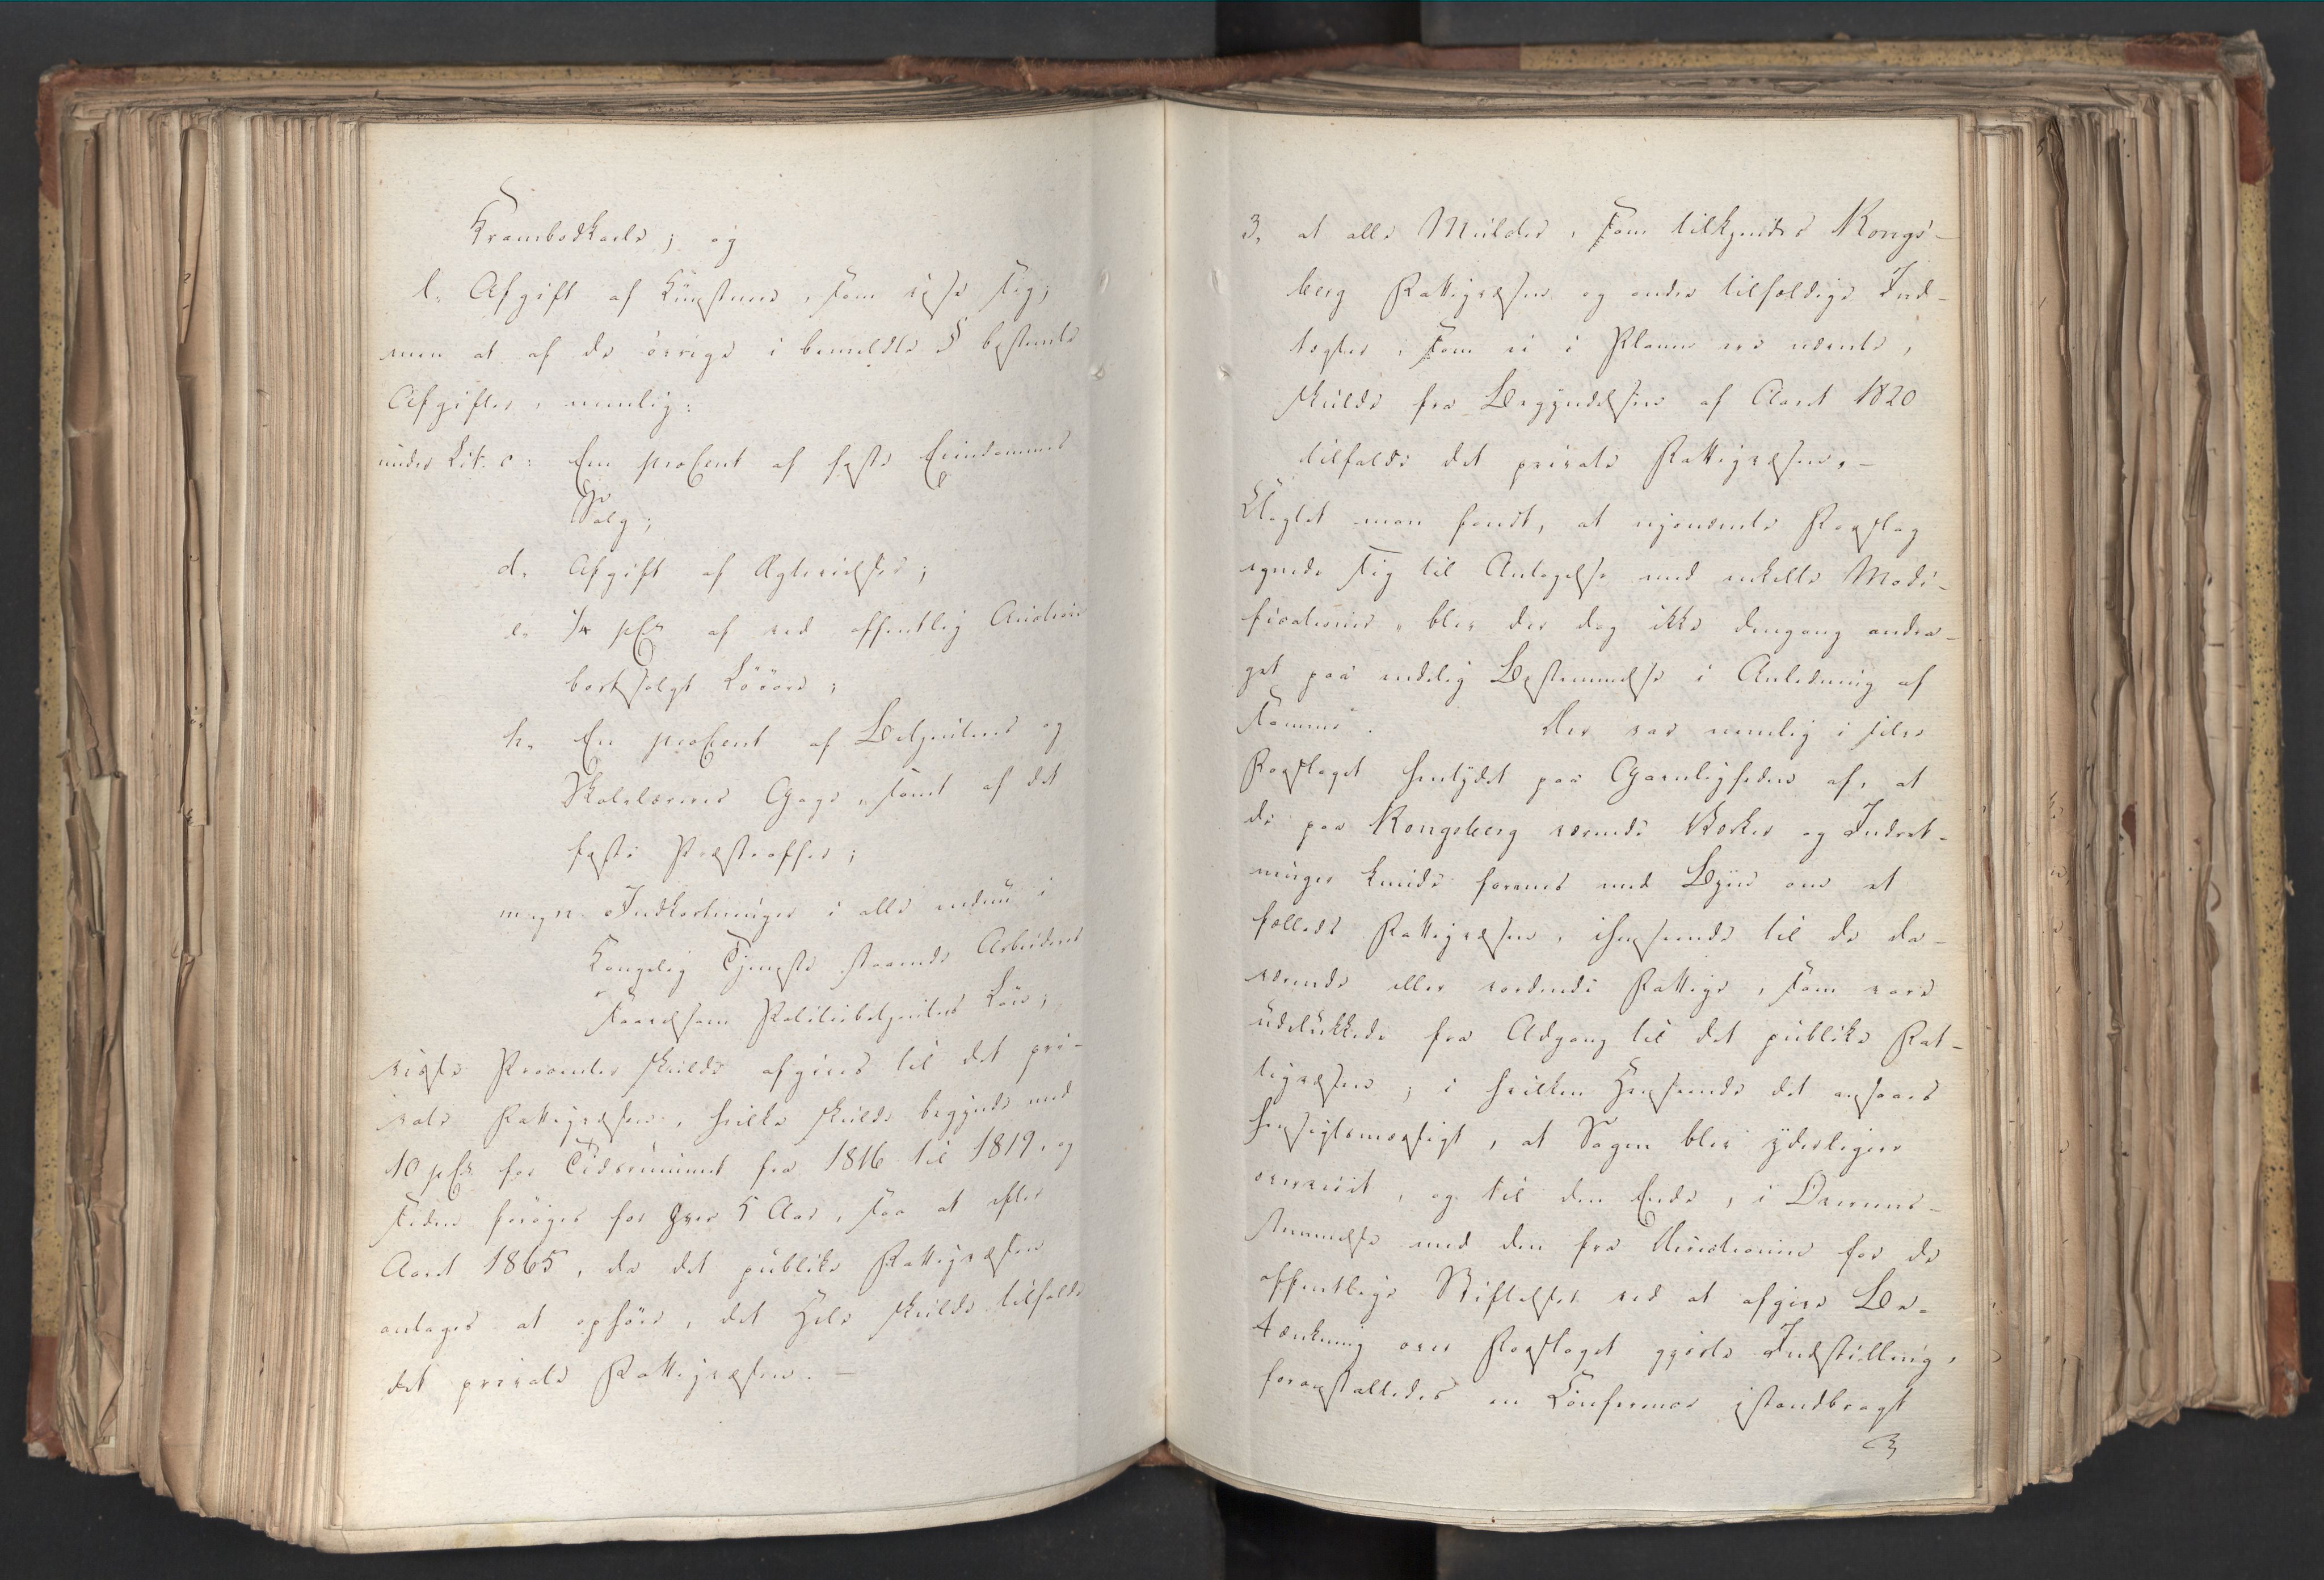 Krambodkarle; og
l. Afgift af Kunstnere, som vise sig;
men at af de øvrige i bemeldte § bestemte
Afgifter, nemlig:
under Lit. c: Een proCent af faste Eiendommes
Salg;
d. Afgift af Ægtevielser;
e. pCt af ved offentlig Auction
bortsolgt Løsøre;
h. En proCent af Betjentenes og
Skolelæreres Gage, samt af det
faste Præsteoffer;
m. n. Indkortninger i alle endnu i
Kongelig Tjeneste staaende Arbeideres
saavelsom Politiebetjentes Løn;
visse Procenter skulde afgives til det pri-
vate Fattigvæsen, hvilke skulde begynde med
10 pCt for Tidsrummet fra 1816 til 1819, og
siden forøges for hver 5 Aar, saa at efter
Aaret 1865, da det publike Fattigvæsen
antages at ophøre, det Hele skulde tilfalde
det private Fattigvæsen. —
3, at alle Mulcter, som tilkjendes Kongs-
berg Fattigvæsen og andre tilfældige Ind-
tægter, som ei i Planen ere nævnte,
skulde fra Begyndelsen af Aaret 1820
tilfalde det private Fattigvæsen. —
Uagtet man fandt, at ovennævnte Forslag
egnede sig til Antagelse med enkelte Modi-
ficationer, blev der dog ikke dengang andra-
get paa endelig Bestemmelse i Anledning af
samme. Der var nemlig i selve
Forslaget hentydet paa Gavnligheden af, at
de paa Kongsberg værende Værker og Indret-
ninger kunde forenes med Byen om et
fælleds Fattigvæsen, ihenseende til de da-
værende eller vordende Fattige, som vare
udelukkede fra Adgang til det publike Fat-
tigvæsen; i hvilken Henseende det ansaaes
hensigtsmæssigt, at Sagen blev yderligere
overveiet, og til den Ende, i Overeens-
stemmelse med den fra Directionen for de
offentlige Stiftelser ved at afgive Be-
tænkning over Forslaget gjorte Indstilling,
foranstaltedes en Conference istandbragt